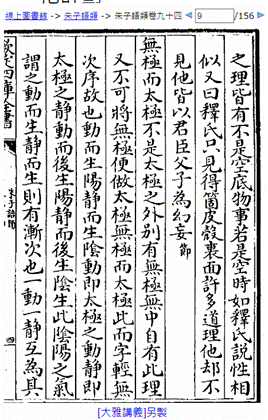 線上圖書館 -> 朱子語類 -> 朱子語類卷九十四 9 /156
之理皆有不是空底物事若是空時如釋氏說性相
似又曰釋氏只見得箇皮殼裏面許多道理他却不
見他皆以君臣父子為幻妄 節
無極而太極不是太極之外别有無極無中自有此理
又不可將無極便做太極無極而太極此而字輕無
次序故也動而生陽静而生陰動即太極之動静即
太極之静動而後生陽静而後生陰生此陰陽之氣
謂之動而生静而生則有漸次也一動一静互為其
欽定四庫全書
朱子語類
四
[大雅講義]另製